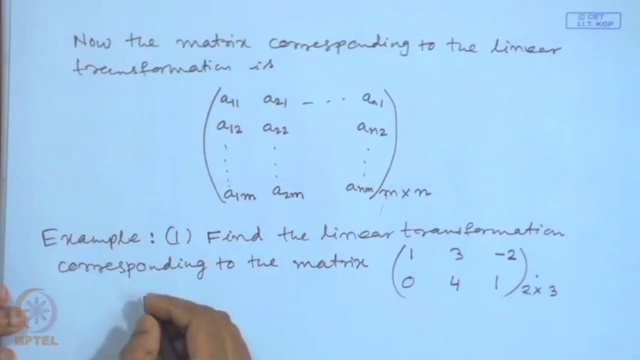 © CET
I.I.T. KGP
Now the matrix corresponding to the linear
transformation is
a11 a21 - ... an1
a12 a22 an2
⋮ ⋮ ⋮
a1m a2m anm m×n
Example: (1) Find the linear transformation
corresponding to the matrix
1 3 -2
0 4 1 2×3
NPTEL